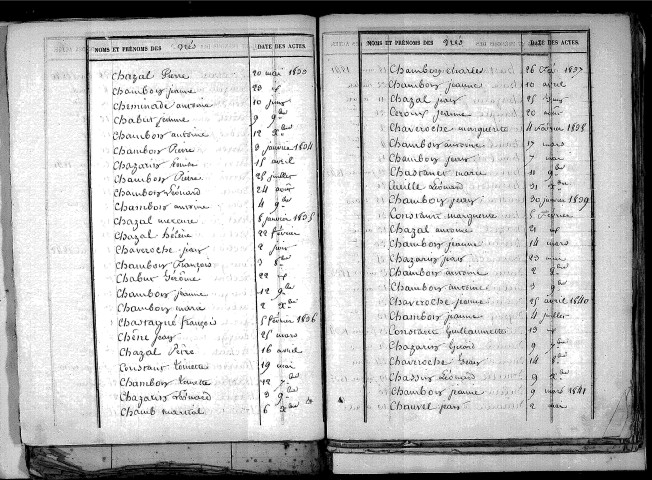 NOMS ET PRÉNOMS DES Nés DATE DES ACTES.
Chazal Pierre 20 mai 1833
Chambon jeanne 20 id
Cheminade antoine 10 juin
Chabut jeanne 9 9bre
Chambon antoine 12 Xbre
Chambon Pierre 3 janvier 1834
Chazarin Louise 15 avril
Chambon Pierre 25 juillet
Chambon Léonard 24 août
Chambon antoine 4 9bre
Chazal 8 janvier 1835
Chazal hélène 22 février
Chaveroche jean 2 juin
Chambon François 3 8bre
Chabut Gérôme 22 id
Chambon jeanne 12 9bre
Chambon marie 2 Xbre
Chastagné François 5 février 1836
Chêne jean 25 mars
Chazal Pière 16 avril
Constant Linette 19 mai
Chambon Linette 12 7bre
Chazarin Léonard 3 9bre
Chamb martial 6 Xbre
NOMS ET PRÉNOMS DES Nés DATE DES ACTES.
Chambon Charles 26 Fév 1837
Chambon jeanne 10 avril
Chazal jean 25 juin
jeanne 20 août
Chaveroche marguerite 4 Février 1838
Chambon antoine 17 mars
Chambon jean 7 mai
Chastanet marie 11 9bre
Cueille Léonard 31 Xbre
Chambon jean 30 janvier 1839
Constant marguerite 5 Février
Chazal antoine 21 id
Chambon jeanne 14 mars
Chazarin jean 23 mai
Chambon antoine 2 Xbre
Chambon antoine 3 9bre
Chaveroche jeanne 25 avril 1840
Chambon jeanne 4 juillet
Constant Guillaumette 13 id
Chazarin Girard 9 7bre
Chaveroche Jean 14 8bre
Chassin Léonard 9 Xbre
Chambon jeanne 9 mars 1841
Chauvel jean 2 mai